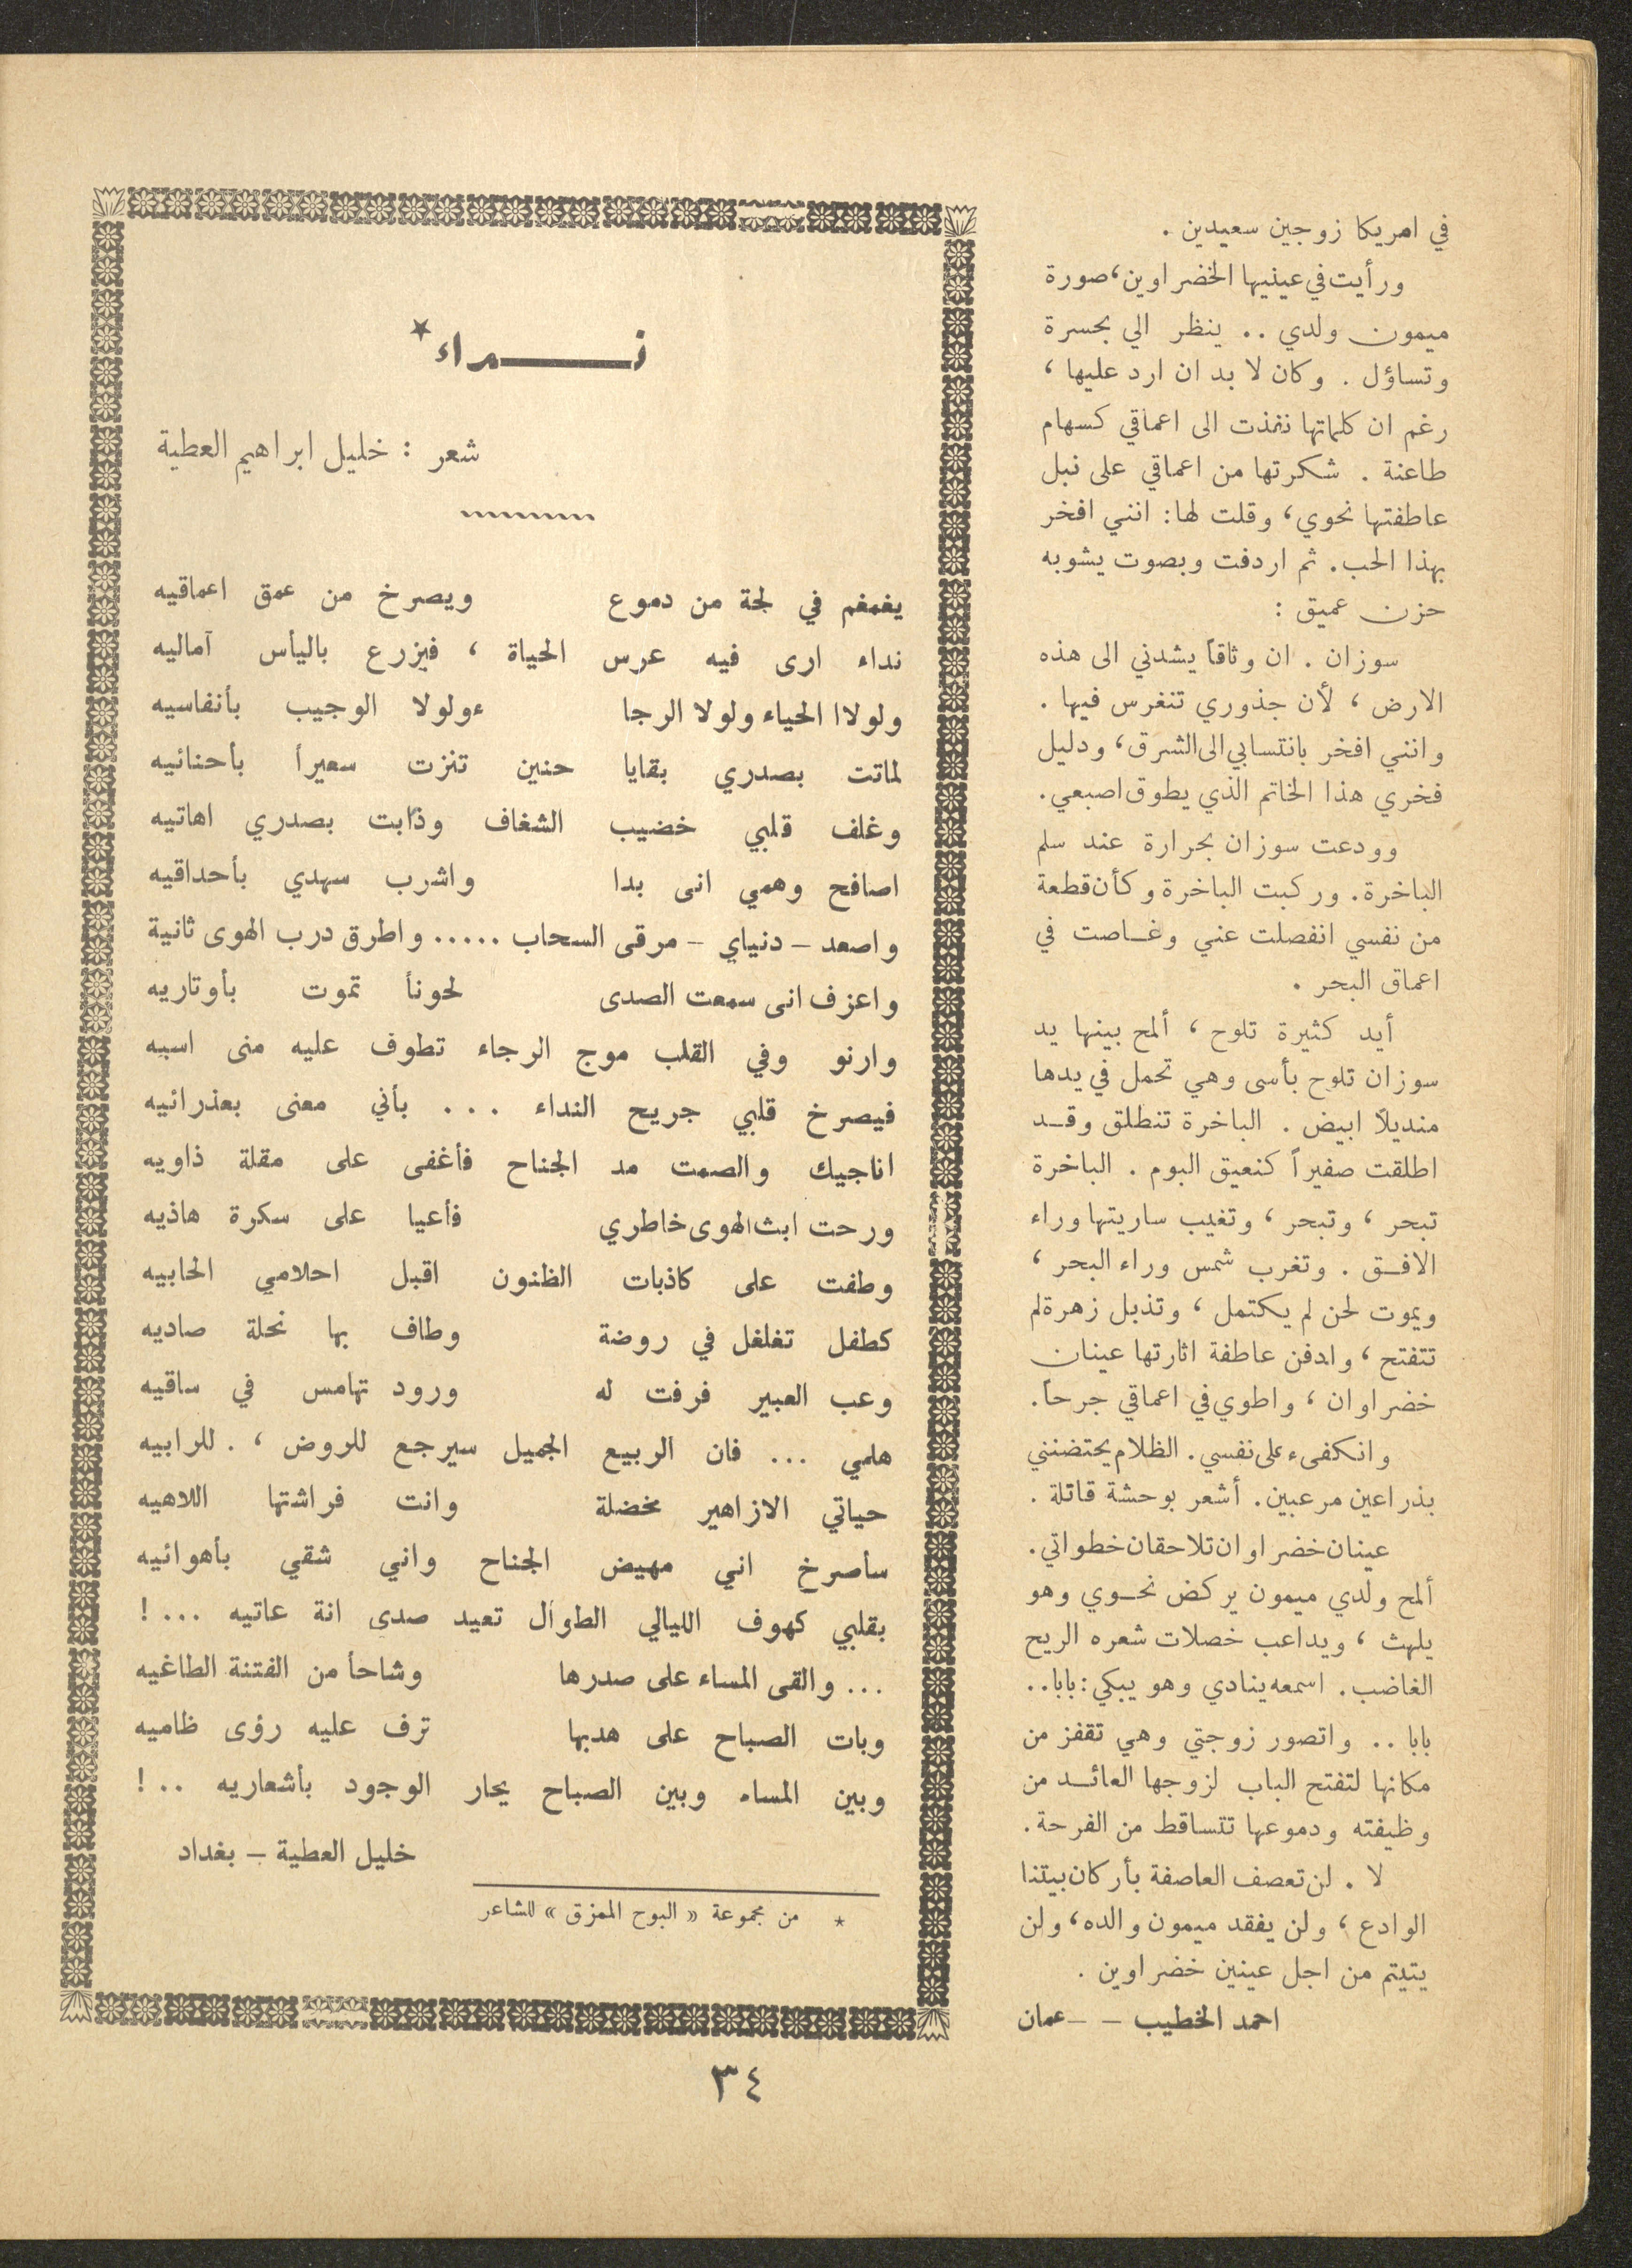 في امريكا زوجين سعيدين .
ورأيت في عينيها الخضراوين، صورة
ميمون ولدي .. ينظر الي بحسرة
وتساؤل . وكان لا بد ان ارد عليها ،
رغم ان كلماتها نفذت الى اعماقي كسهام
طاعنة . شكرتها من اعماقي على نبل
عاطفتها نحوي، وقلت لها: انني افخر
بهذا الحب. ثم اردفت وبصوت يشوبه
حزن عميق :
سوزان . ان وثاقاً يشدني الى هذه
الارض ، لأن جذوري تنغرس فيها .
وانني افخر بانتسابي الى الشرق، ودليل
فخري هذا الخاتم الذي يطوق اصبعي.
وودعت سوزان بحرارة عند سلم
الباخرة. وركبت الباخرة وكأن قطعة
من نفسي انفصلت عني وغاصت في
اعماق البحر .
أيد كثيرة تلوح ، ألمح بينها يد
سوزان تلوح بأسى وهي تحمل في يدها
منديلاً ابيض . الباخرة تنطلق وقد
اطلقت صفيراً كنعيق البوم . الباخرة
تبحر ، وتبحر ، وتغيب ساريتها وراء
الافق . وتغرب شمس وراء البحر ،
ويموت لحن لم يكتمل ، وتذبل زهرة لم
تتفتح ، وادفن عاطفة اثارتها عينان
خضراوان ، واطوي في اعماقي جرحاً.
وانكفىء على نفسي. الظلام يحتضنني
بذراعين مرعبين. أشعر بوحشة قاتلة .
عينان خضراوان تلاحقان خطواتي.
ألمح ولدي ميمون يركض نحوي وهو
يلهث ، ويداعب خصلات شعره الريح
الغاضب. اسمعه ينادي وهو يبكي: بابا..
بابا .. واتصور زوجتي وهي تقفز من
مكانها لتفتح الباب لزوجها العائد من
وظيفته ودموعها تتساقط من الفرحة.
لا . لن تعصف العاصفة بأركان بيتنا
الوادع ، ولن يفقد ميمون والده، ولن
يتيتم من اجل عينين خضراوين .
احمد الخطيب - - عمان
نداء*
شعر : خليل ابراهيم العطية
يغمغم في لجة من دموع ويصرخ من عمق اعماقيه
نداء ارى فيه عرس الحياة ، فيزرع باليأس آماليه
ولولاا الحياء ولولا الرجا ءولولا الوجيب بأنفاسيه
لماتت بصدري بقايا حنين تنزت سعيراً بأحنائيه
وغلف قلبي خضيب الشغاف وذابت بصدري اهاتيه
اصافح وهمي انى بدا واشرب سهدي بأحداقيه
واصعد - دنياي - مرقى السحاب ..... واطرق درب الهوى ثانية
واعزف انى سمعت الصدى لحوناً تموت بأوتاريه
وارنو وفي القلب موج الرجاء تطوف عليه منى اسيه
فيصرخ قلبي جريح النداء ... بأني معنى بعذرائيه
اناجيك والصمت مد الجناح فأغفى على مقلة ذاويه
ورحت ابث الهوى خاطري فأعيا على سكرة هاذيه
وطفت على كاذبات الظنون اقبل احلامي الحابيه
كطفل تغلغل في روضة وطاف بها نحلة صاديه
وعب العبير فرفت له ورود تهامس في ساقيه
هلمي ... فان الربيع الجميل سيرجع للروض ، . للرابيه
حياتي الازاهير مخضلة وانت فراشتها اللاهيه
سأصرخ اني مهيض الجناح واني شقي بأهوائيه
بقلبي كهوف الليالي الطوال تعيد صدى انة عاتيه ...!
... والقى المساء على صدرها وشاحاً من الفتنة الطاغيه
وبات الصباح على هدبها ترف عليه رؤى ظاميه
وبين المساء وبين الصباح يحار الوجود بأشعاريه ..!
خليل العطية - بغداد
* من مجموعة « البوح الممزق » للشاعر
٣٤